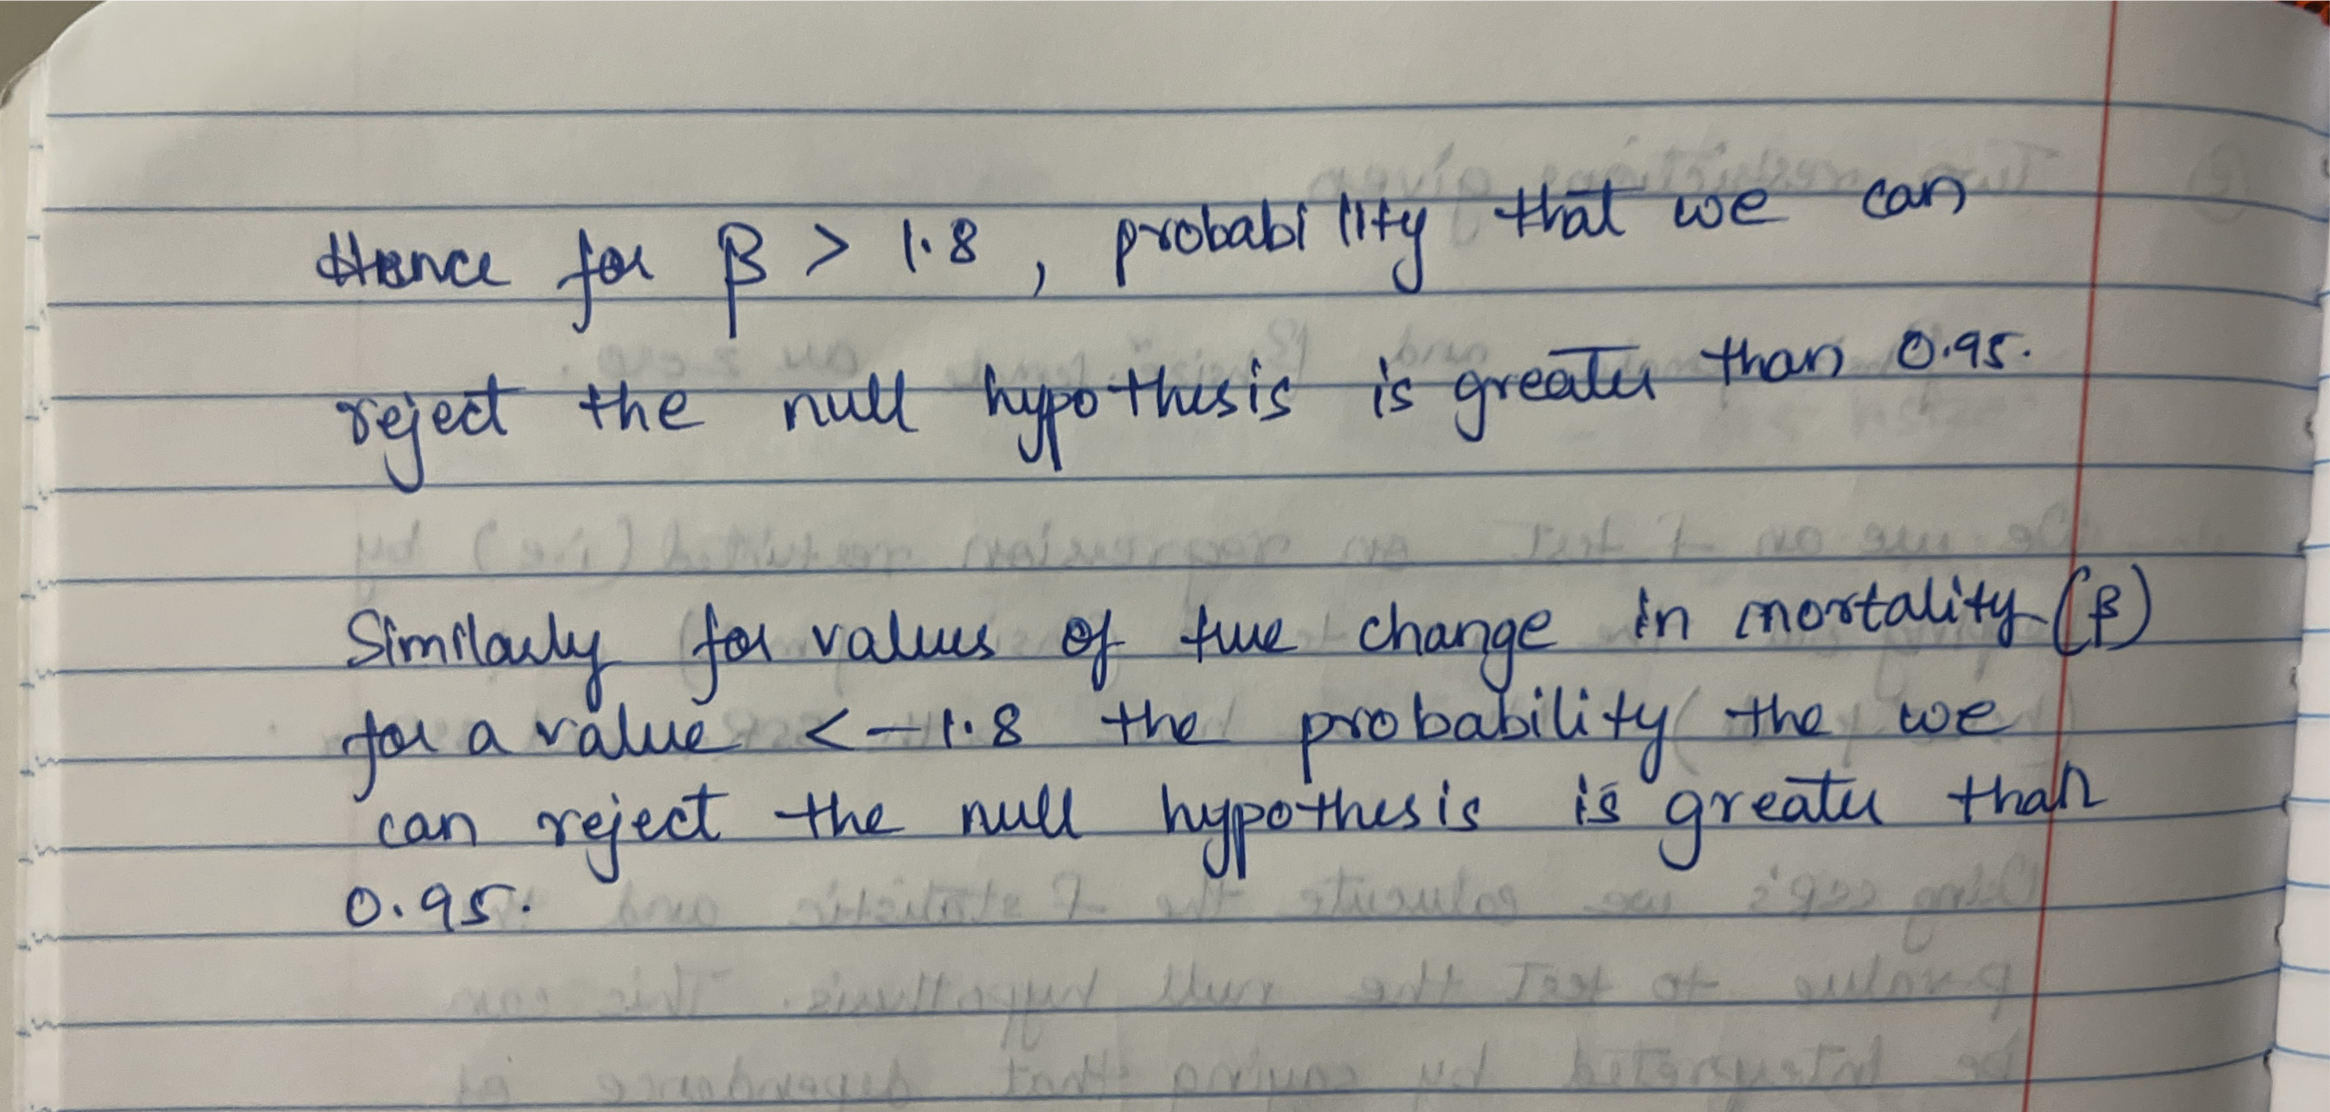 Hence for β > 1.8, probability that we can
reject the null hypothesis is greater than 0.95.
Similarly for values of true change in mortality (β)
for a value < -1.8 the probability the we
can reject the null hypothesis is greater than
0.95.